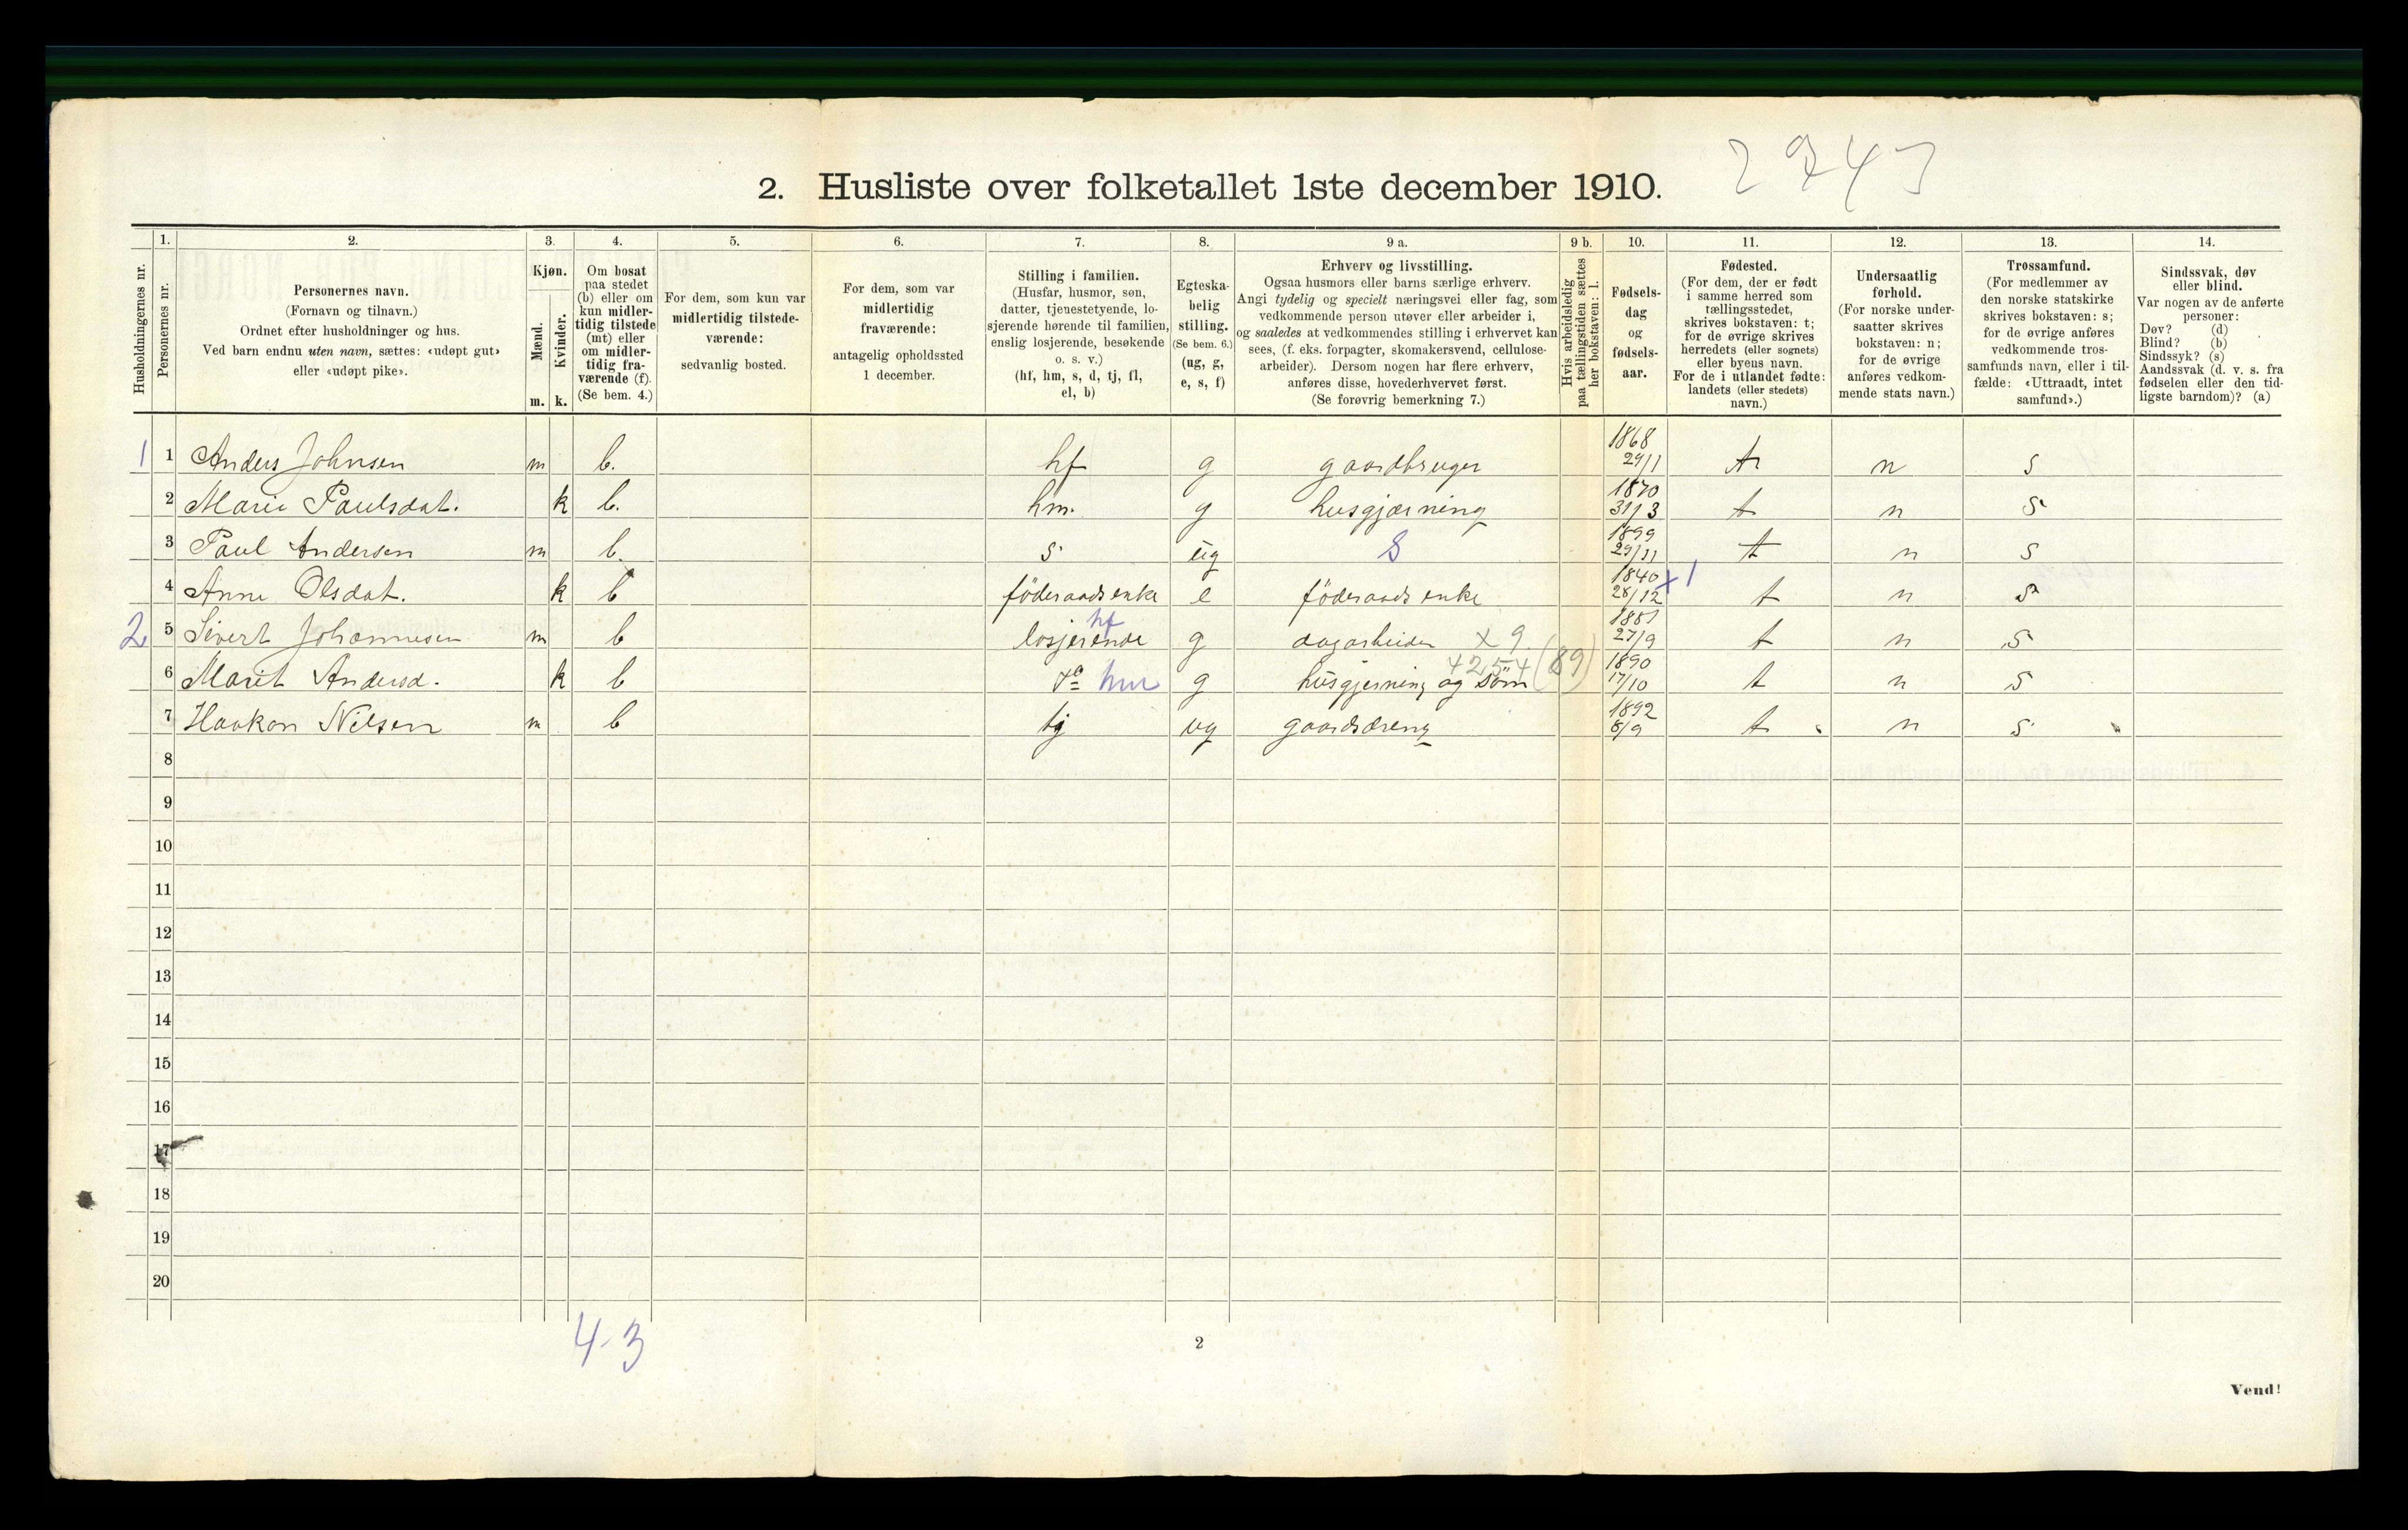 2743
2. Husliste over folketallet 1ste december 1910.
Husholdningernes nr.
1.
Personernes nr.
2.
Personernes navn.
(Fornavn og tilnavn.)
Ordnet efter husholdninger og hus.
Ved barn endnu uten navn, sættes: «udøpt gut»
eller «udøpt pike».
3.
Kjøn.
Mænd.
Kvinder.
m. k.
4.
Om bosat
paa stedet
(b) eller om
kun midler-
tidig tilstede
(mt) eller
om midler-
tidig fra-
værende (f).
(Se bem. 4.)
5.
For dem, som kun var
midlertidig tilstede-
værende:
sedvanlig bosted.
6.
For dem, som var
midlertidig
fraværende:
antagelig opholdssted
1 december.
7.
Stilling i familien.
(Husfar, husmor, søn,
datter, tjenestetyende, lo-
sjerende hørende til familien,
enslig losjerende, besøkende
o. s. v.)
(hf, hm, s, d, tj, fl,
el, b)
8.
Egteska-
belig
stilling.
(Se bem. 6.)
(ug, g,
e, s, f)
9 a.
Erhverv og livsstilling.
Ogsaa husmors eller barns særlige erhverv.
Angi tydelig og specielt næringsvei eller fag, som
vedkommende person utøver eller arbeider i,
og saaledes at vedkommendes stilling i erhvervet kan
sees, (f. eks. forpagter, skomakersvend, cellulose-
arbeider). Dersom nogen har flere erhverv,
anføres disse, hovederhvervet først.
(Se forøvrig bemerkning 7.)
9 b.
Hvis arbeidsledig
paa tællingstiden sættes
her bokstaven: l.
10.
Fødsels-
dag
og
fødsels-
aar.
11.
Fødested.
(For dem, der er født
i samme herred som
tællingsstedet,
skrives bokstaven: t;
for de øvrige skrives
herredets (eller sognets)
eller byens navn.
For de i utlandet fødte:
landets (eller stedets)
navn.)
12.
Undersaatlig
forhold.
(For norske under-
saatter skrives
bokstaven: n;
for de øvrige
anføres vedkom-
mende stats navn.)
13.
Trossamfund.
(For medlemmer av
den norske statskirke
skrives bokstaven: s;
for de øvrige anføres
vedkommende tros-
samfunds navn, eller i til-
fælde: «Uttraadt, intet
samfund».)
14.
Sindssvak, døv
eller blind.
Var nogen av de anførte
personer:
Døv? (d)
Blind? (b)
Sindssyk? (s)
Aandssvak (d. v. s. fra
fødselen eller den tid-
ligste barndom)? (a)
1 1 Anders Johnsen m b. hf g gaardbruger 1868 29/1 t n s
2 Marie Paulsdat. k b. hm. g husgjærning 1870 31/3 t n s
3 Paul Andersen m b. s ug S 1899 29/11 t n s
4 Anne Olsdat. k b föderaadsenke e föderaads enke 1840 28/12 x 1 t n s
2 5 Sivert Johannesen m b losjerende hf g dagarbeider x 9. 1881 27/9 t n s
6 Marit Andersd. k b do hm g husgjerning og söm 4254 (89) 1890 17/10 t n s
7 Haakon Nilsen m b tj ug gaardsdreng 1892 8/9 t n s
8
9
10
11
12
13
14
15
16
17
18
19
20
4-3
2
Vend!